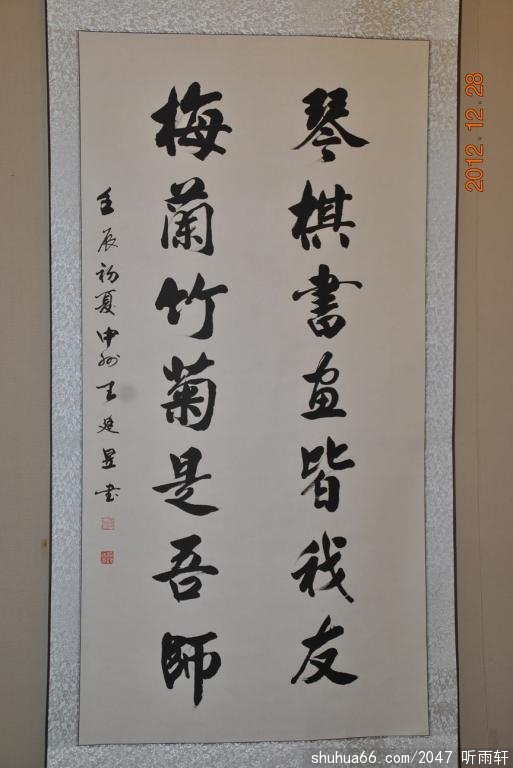 琴棋書画皆我友
梅蘭竹菊是吾師
壬辰初夏中州王廷昱书
2012.12.28
shuhua66.com/2047 听雨轩